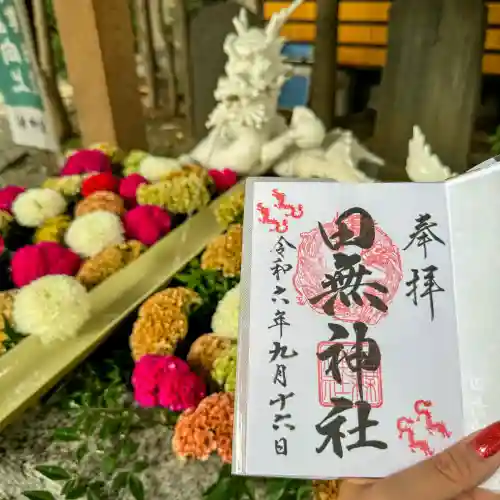 奉拝
田無神社
令和六年九月十六日
向上